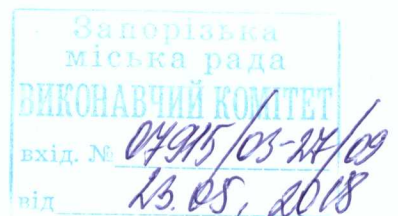 Запорізька
міська рада
ВИКОНАВЧИЙ КОМІТЕТ
вхід. № 07915/03-27/09
від 23.05.2018